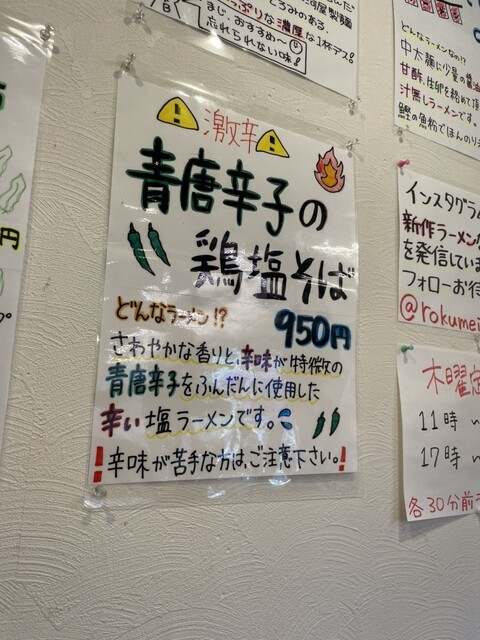 とろみのある、
まじ、おすすめ〜
忘れられない味!
激辛
青唐辛子の
鶏塩そば
950円
どんなラーメン!?
さわやかな香りと、辛味が特徴の
青唐辛子をふんだんに使用した
辛い塩ラーメンです。
!辛味が苦手な方は、ご注意下さい。!
どんなラーメンなの!?
中太麺に少量の醤油
甘酢、生卵を絡めて頂
汁無しラーメンです。
鰹の魚粉でほんのり
インスタグラム
新作ラーメン
を発信していま
フォローお待
@rokumei
木曜定
11時 〜
17時 〜
各30分前
円